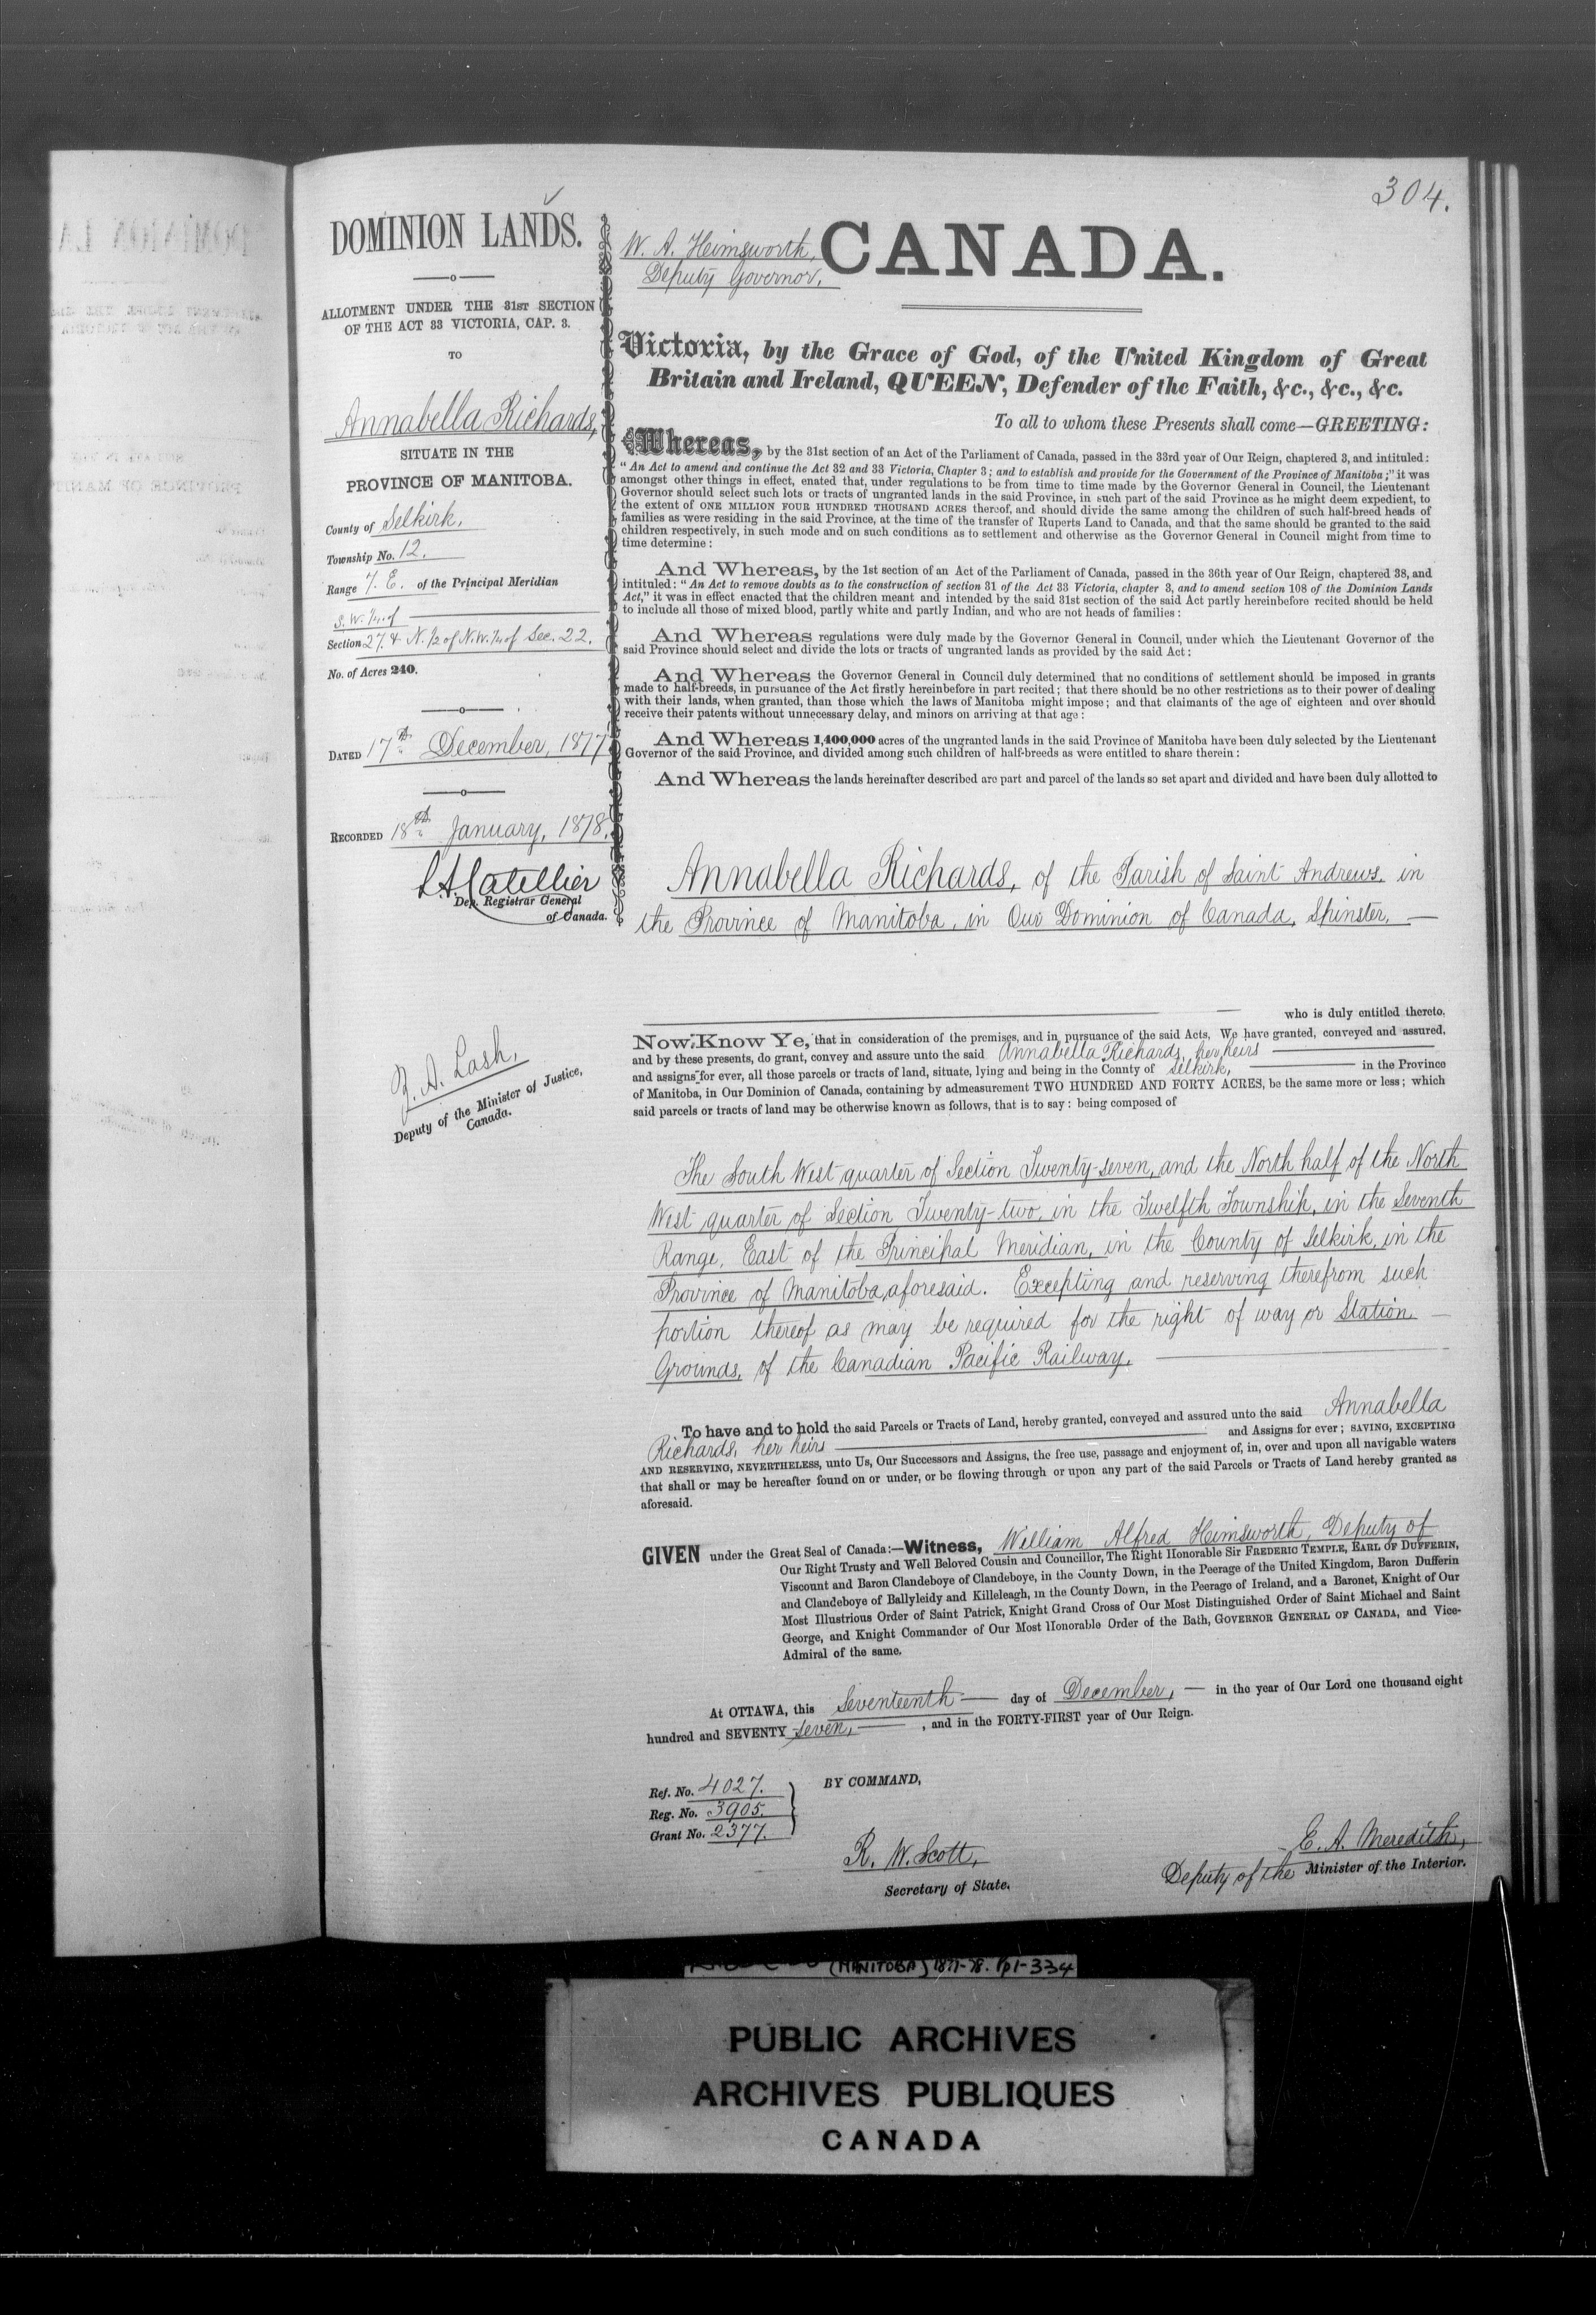 304.
DOMINION LANDS.
ALLOTMENT UNDER THE 31ST SECTION
OF THE ACT 33 VICTORIA, CAP. 3.
TO
Annabella Richards,
SITUATE IN THE
PROVINCE OF MANITOBA.
County of Selkirk.
Township No. 12.
Range 7. E. of the Principal Meridian
S.W. 1/4 of
Section 27 & N. 1/2 of N.W. 1/4 of Sec. 22.
No. of Acres 240.
DATED 17th December, 1877
RECORDED 18th January, 1878.
Dep. Registrar General
of Canada.
Z. A. Lash,
Deputy of the Minister of Justice,
Canada.
W. A. Himsworth,
Deputy Governor.
CANADA.
Victoria, by the Grace of God, of the United Kingdom of Great
Britain and Ireland, QUEEN, Defender of the Faith, &c., &c., &c.
To all to whom these Presents shall come—GREETING:
Whereas, by the 31st section of an Act of the Parliament of Canada, passed in the 33rd year of Our Reign, chaptered 3, and intituled:
"An Act to amend and continue the Act 32 and 33 Victoria, Chapter 3; and to establish and provide for the Government of the Province of Manitoba;" it was
amongst other things in effect, enated that, under regulations to be from time to time made by the Governor General in Council, the Lieutenant
Governor should select such lots or tracts of ungranted lands in the said Province, in such part of the said Province as he might deem expedient, to
the extent of ONE MILLION FOUR HUNDRED THOUSAND ACRES thereof, and should divide the same among the children of such half-breed heads of
families as were residing in the said Province, at the time of the transfer of Ruperts Land to Canada, and that the same should be granted to the said
children respectively, in such mode and on such conditions as to settlement and otherwise as the Governor General in Council might from time to
time determine:
And Whereas, by the 1st section of an Act of the Parliament of Canada, passed in the 36th year of Our Reign, chaptered 38, and
intituled: "An Act to remove doubts as to the construction of section 31 of the Act 33 Victoria, chapter 3, and to amend section 108 of the Dominion Lands
Act," it was in effect enacted that the children meant and intended by the said 31st section of the said Act partly hereinbefore recited should be held
to include all those of mixed blood, partly white and partly Indian, and who are not heads of families:
And Whereas regulations were duly made by the Governor General in Council, under which the Lieutenant Governor of the
said Province should select and divide the lots or tracts of ungranted lands as provided by the said Act:
And Whereas the Governor General in Council duly determined that no conditions of settlement should be imposed in grants
made to half-breeds, in pursuance of the Act firstly hereinbefore in part recited; that there should be no other restrictions as to their power of dealing
with their lands, when granted, than those which the laws of Manitoba might impose; and that claimants of the age of eighteen and over should
receive their patents without unnecessary delay, and minors on arriving at that age:
And Whereas 1,400,000 acres of the ungranted lands in the said Province of Manitoba have been duly selected by the Lieutenant
Governor of the said Province, and divided among such children of half-breeds as were entitled to share therein:
And Whereas the lands hereinafter described are part and parcel of the lands so set apart and divided and have been duly allotted to
Annabella Richards, of the Parish of Saint Andrews, in
the Province of Manitoba, in Our Dominion of Canada, Spinster,
who is duly entitled thereto.
Now Know Ye, that in consideration of the premises, and in pursuance of the said Acts, We have granted, conveyed and assured,
and by these presents, do grant, convey and assure unto the said Annabella Richards, her heirs
and assigns for ever, all those parcels or tracts of land, situate, lying and being in the County of Selkirk, in the Province
of Manitoba, in Our Dominion of Canada, containing by admeasurement TWO HUNDRED AND FORTY ACRES, be the same more or less; which
said parcels or tracts of land may be otherwise known as follows, that is to say: being composed of
The South West quarter of Section Twenty-seven, and the North half of the North
West quarter of Section Twenty-two, in the Twelfth Township, in the Seventh
Range, East of the Principal Meridian, in the County of Selkirk, in the
Province of Manitoba, aforesaid. Excepting and reserving therefrom such
portion thereof as may be required for the right of way or Station
Grounds, of the Canadian Pacific Railway.
To have and to hold the said Parcels or Tracts of Land, hereby granted, conveyed and assured unto the said Annabella
Richards, her heirs and Assigns for ever; SAVING, EXCEPTING
AND RESERVING, NEVERTHELESS, unto Us, Our Successors and Assigns, the free use, passage and enjoyment of, in, over and upon all navigable waters
that shall or may be hereafter found on or under, or be flowing through or upon any part of the said Parcels or Tracts of Land hereby granted as
aforesaid.
GIVEN under the Great Seal of Canada:—Witness, William Alfred Himsworth, Deputy of
Our Right Trusty and Well Beloved Cousin and Councillor, The Right Honorable Sir FREDERIC TEMPLE, EARL OF DUFFERIN,
Viscount and Baron Clandeboye of Clandeboye, in the County Down, in the Peerage of the United Kingdom, Baron Dufferin
and Clandeboye of Ballyleidy and Killeleagh, in the County Down, in the Peerage of Ireland, and a Baronet, Knight of Our
Most Illustrious Order of Saint Patrick, Knight Grand Cross of Our Most Distinguished Order of Saint Michael and Saint
George, and Knight Commander of Our Most Honorable Order of the Bath, GOVERNOR GENERAL OF CANADA, and Vice-
Admiral of the same.
At OTTAWA, this Seventeenth day of December, in the year of Our Lord one thousand eight
hundred and SEVENTY seven, , and in the FORTY-FIRST year of Our Reign.
Ref. No. 4027.
Reg. No. 3905.
Grant No. 2377.
BY COMMAND,
R. W. Scott,
Secretary of State.
E. A. Meredith,
Deputy of the Minister of the Interior.
(MANITOBA) 1877-78. pp1-334
PUBLIC ARCHIVES
ARCHIVES PUBLIQUES
CANADA